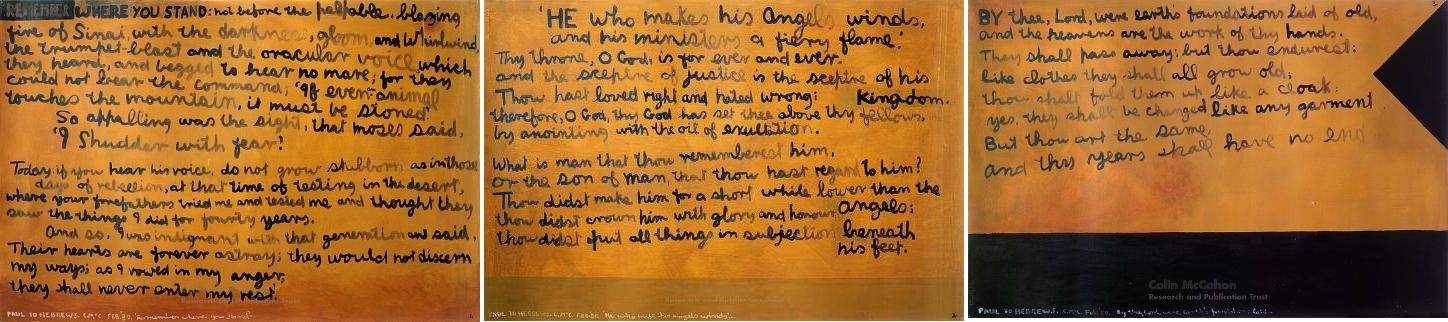 REMEMBER WHERE YOU STAND: not before the palpable, blazing
fire of Sinai, with the darkness, gloom, and Whirlwind,
the trumpet-blast and the oracular voice which
they heard, and begged to hear no more; for they
could not bear the command, 'If even an animal
touches the mountain, it must be stoned'
So appalling was the sight, that moses said,
'I Shudder with fear!'
Today, if you hear his voice, do not grow stubborn as in those
days of rebellion, at that time of testing in the desert,
where your forefathers tried me and tested me and thought they
saw the things I did for fourty years.
And so, I was indignant with that generation and said,
Their hearts are forever astray; they would not discern
my ways; as I vowed in my anger,
they shall never enter my rest.
PAUL TO HEBREWS. C.McC. FEB. '80. 'Remember where you stand' 1.
'HE who makes his Angels winds,
and his ministers a fiery flame.'
Thy throne, O God, is for ever and ever.
and the sceptre of justice is the sceptre of his
Kingdom.
Thou hast loved right and hated wrong;
therefore, O God, thy God has set thee above thy fellows,
by anointing with the oil of exultation.
What is man that thou rememberest him,
or the son of man, that thou hast regard to him?
Thou didst make him for a short while lower than the
angels;
thou didst crown him with glory and honour
thou didst put all things in subjection beneath
his feet.
PAUL TO HEBREWS. C.McC. FEB. 80. 'He who makes his angels winds' 2.
BY thee, Lord, were earth's foundations laid of old,
and the heavens are the work of thy hands.
They shall pass away; but thou endurest:
like clothes they shall all grow old;
thou shalt fold them up like a cloak;
yes, they shall be changed like any garment
But thou art the same,
and thy years shall have no end
3.
Colin McCahon
Research and Publication Trust
PAUL TO HEBREWS. C.McC. Feb '80. By thee, Lord, were earth's foundations laid